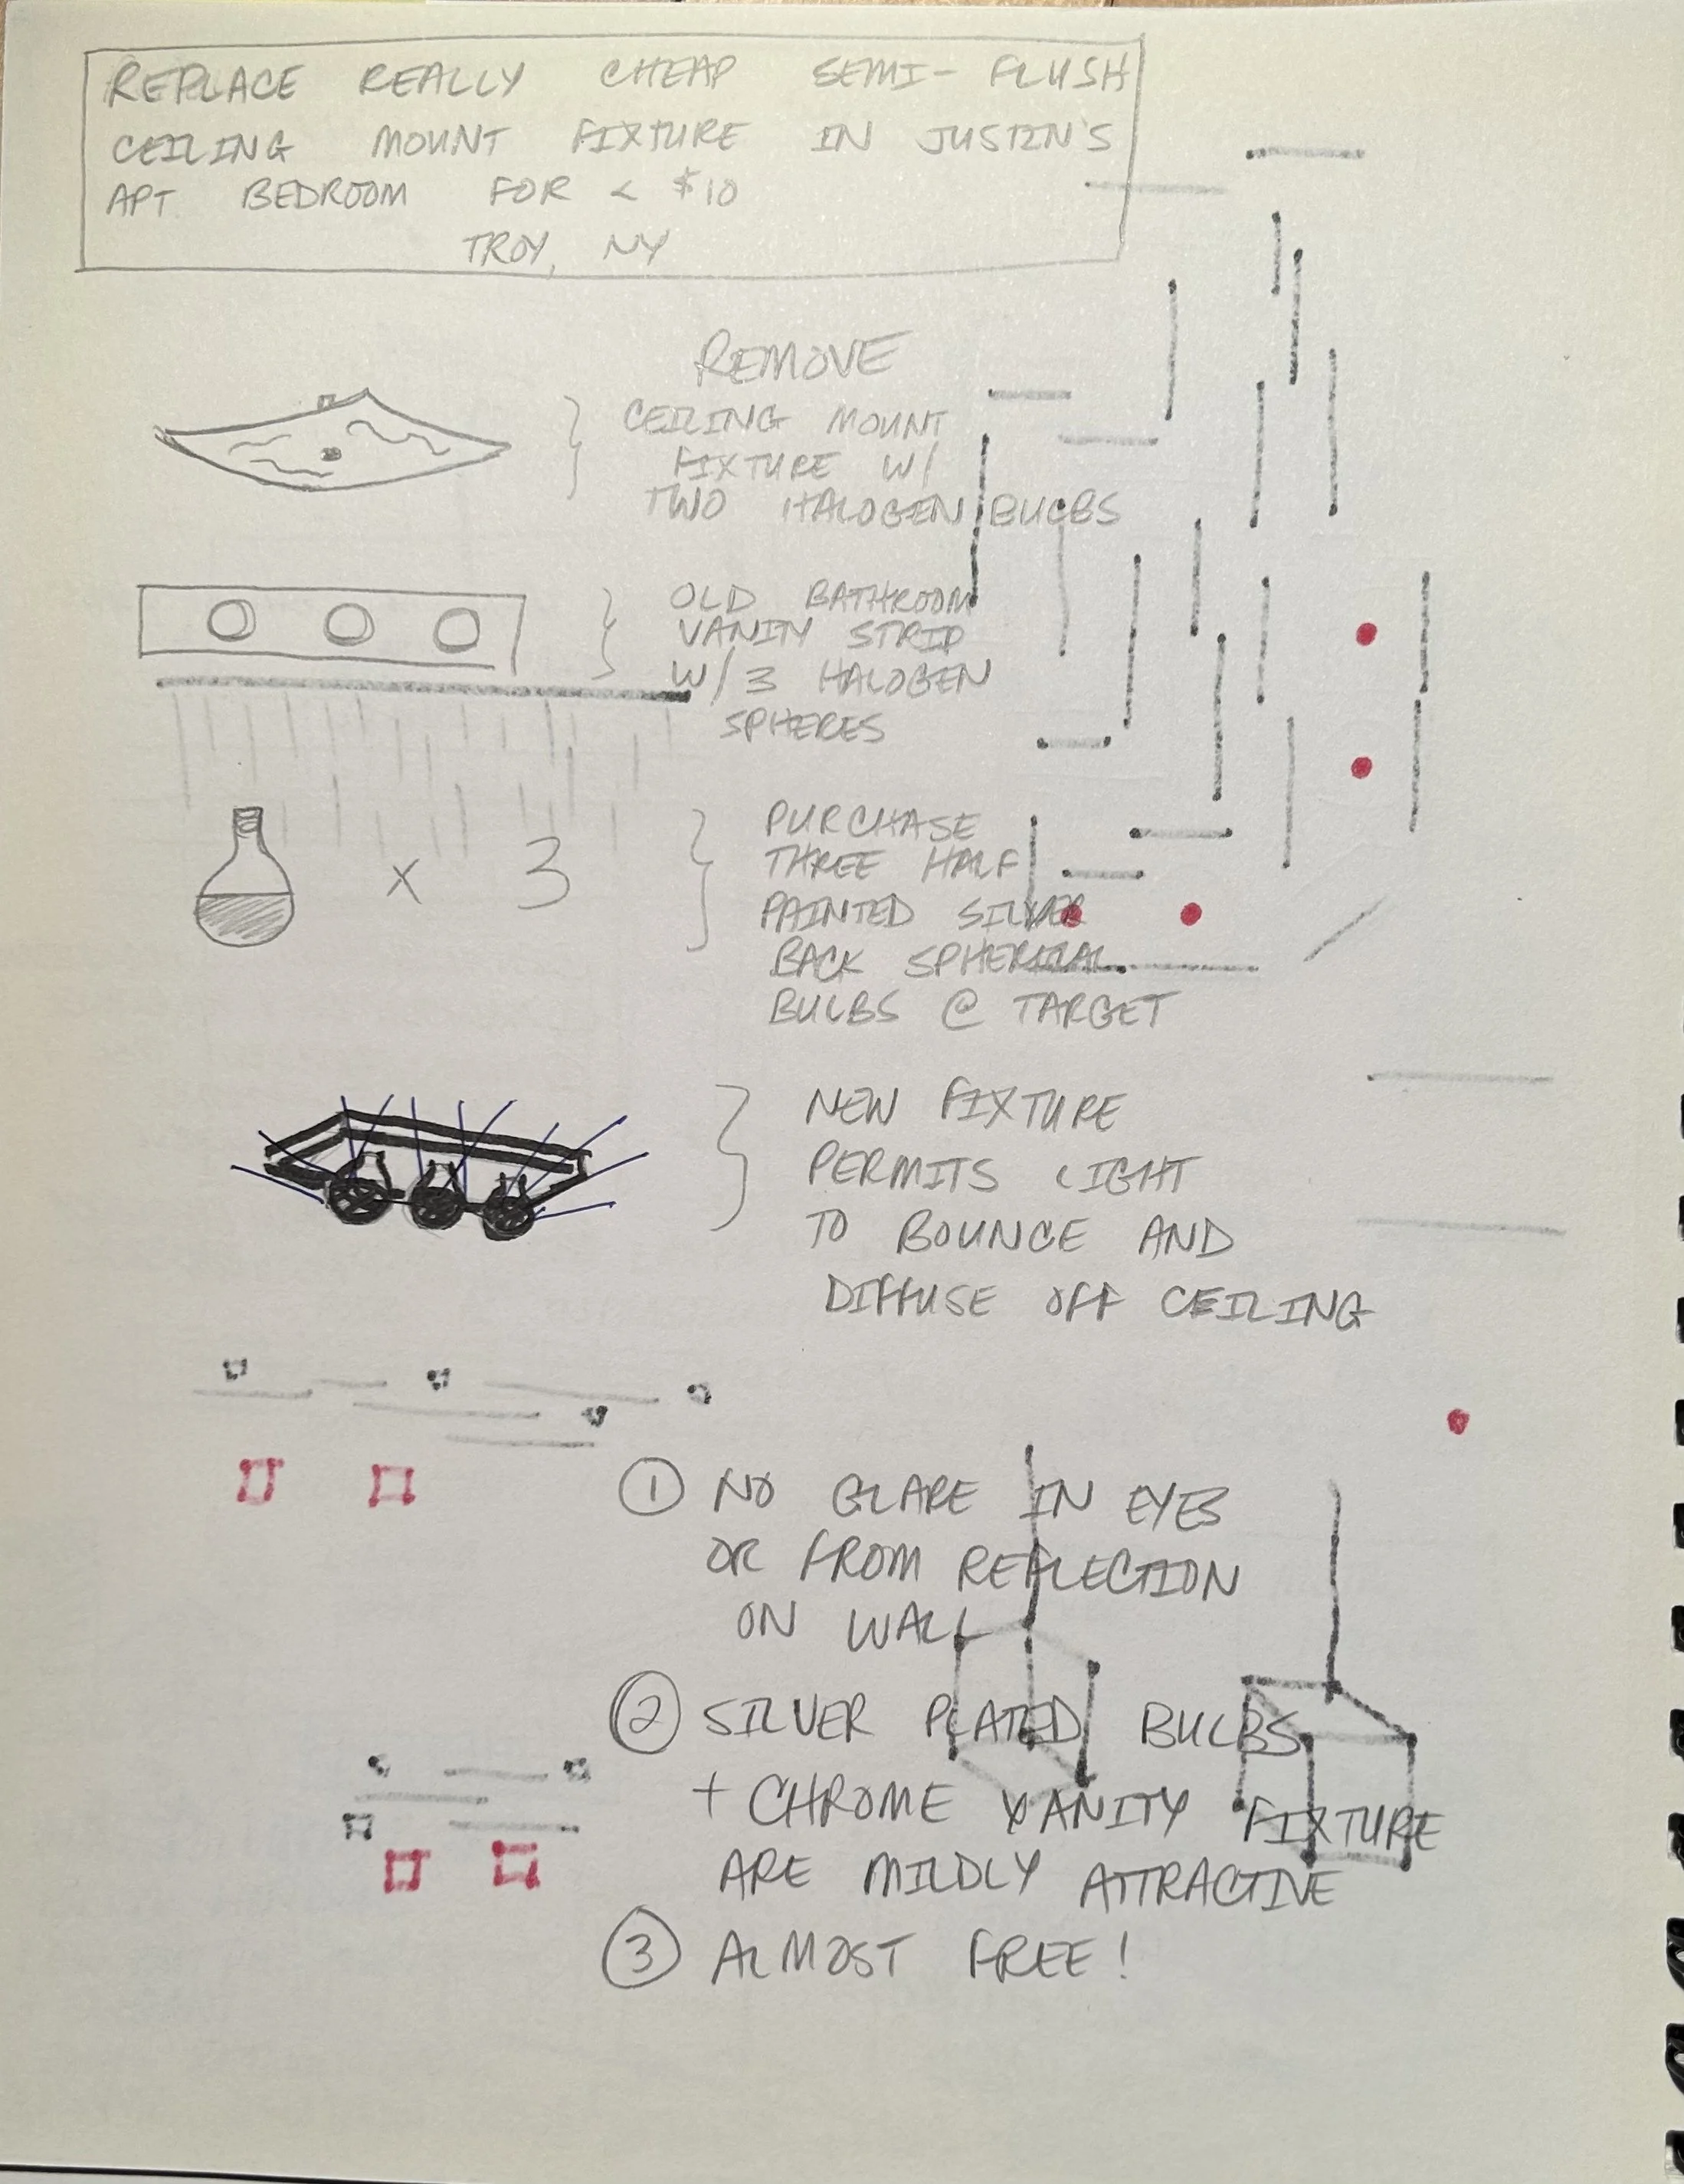 REPLACE REALLY CHEAP SEMI-FLUSH
CEILING MOUNT FIXTURE IN JUSTIN'S
APT BEDROOM FOR < $10
TROY, NY
REMOVE
CEILING MOUNT
FIXTURE W/
TWO HALOGEN BULBS
OLD BATHROOM
VANITY STRIP
W/3 HALOGEN
SPHERES
X 3
PURCHASE
THREE HALF
PAINTED SILVER
BACK SPHERICAL
BULBS @ TARGET
NEW FIXTURE
PERMITS LIGHT
TO BOUNCE AND
DIFFUSE OFF CEILING
① NO GLARE IN EYES
OR FROM REFLECTION
ON WALL
② SILVER PLATED BULBS
+ CHROME VANITY FIXTURE
ARE MILDLY ATTRACTIVE
③ ALMOST FREE!